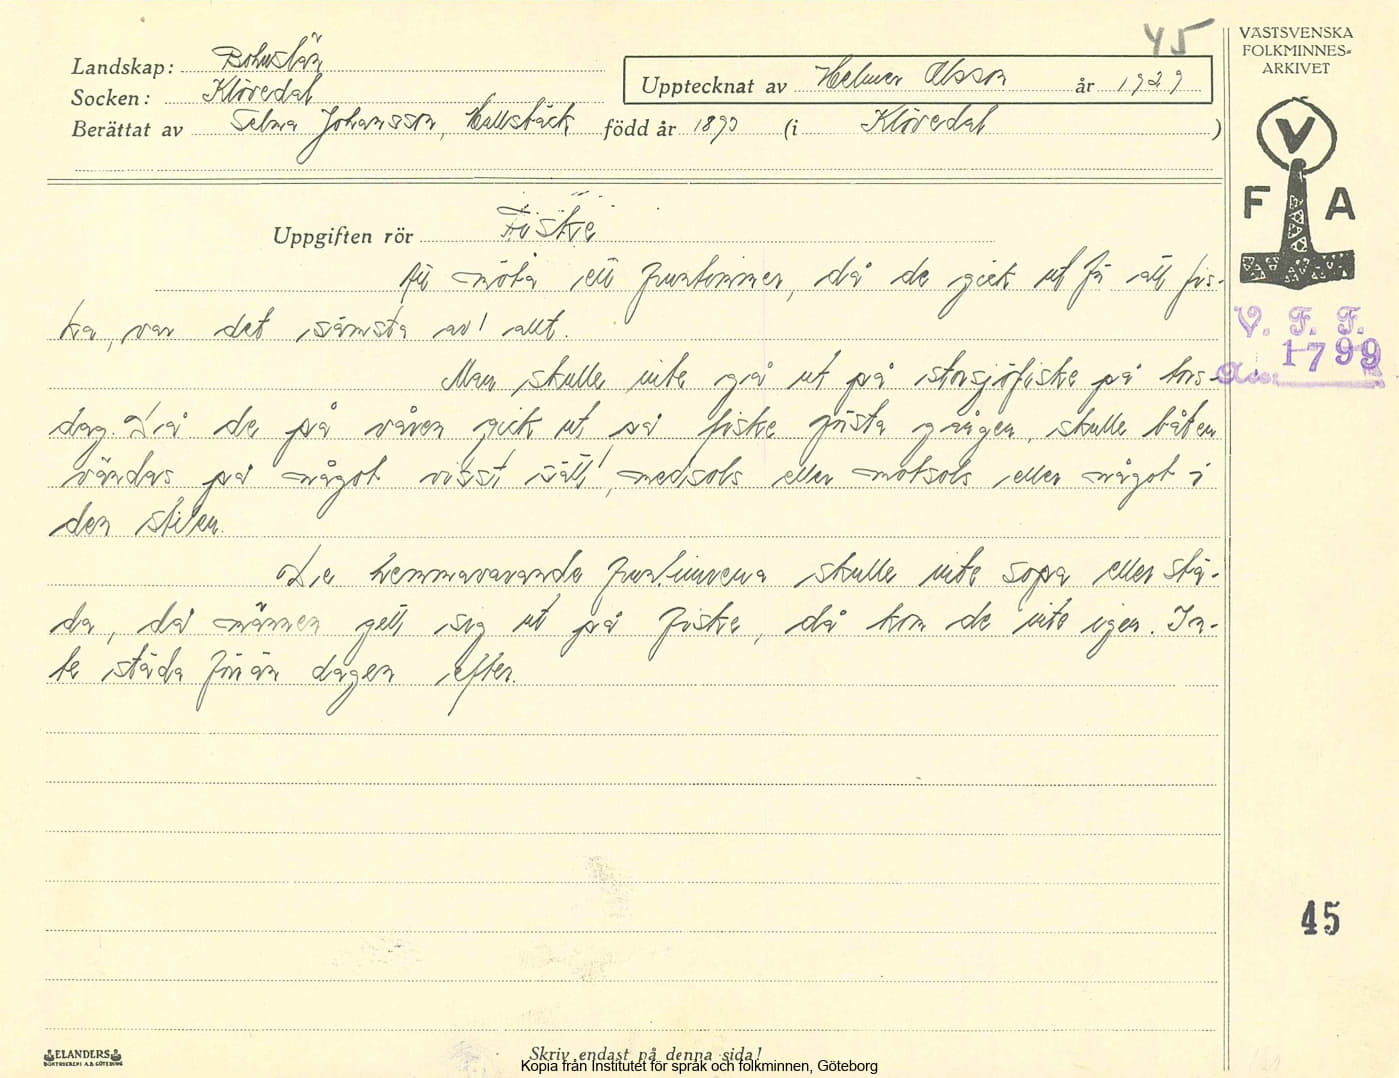 45
VÄSTSVENSKA
FOLKMINNES-
ARKIVET
Landskap: Bohuslän
Socken: Klövedal
Upptecknat av Helmer Olsson år 1929
Berättat av Selma Johansson, Hallsbäck född år 1893 (i Klövedal)
V
F A
Uppgiften rör Fiske
Att möta ett fruntimmer, då de gick ut för att fis-
ka, var det sämsta av allt.
V. F. F.
Acc. 1799
Man skulle inte gå ut på storsjöfiske på tors-
dag. Då de på våren gick ut på fiske första gången, skulle båten
vändas på något visst sätt, medsols eller motsols eller något i
den stilen.
De hemmavarande fruntimrena skulle inte sopa eller stä-
da, då männen gett sig ut på fiske, då kom de inte igen. In-
te städa förrän dagen efter.
45
ELANDERS
BOKTRYCKERI A.B. GÖTEBORG
Skriv endast på denna sida!
Kopia från Institutet för språk och folkminnen, Göteborg